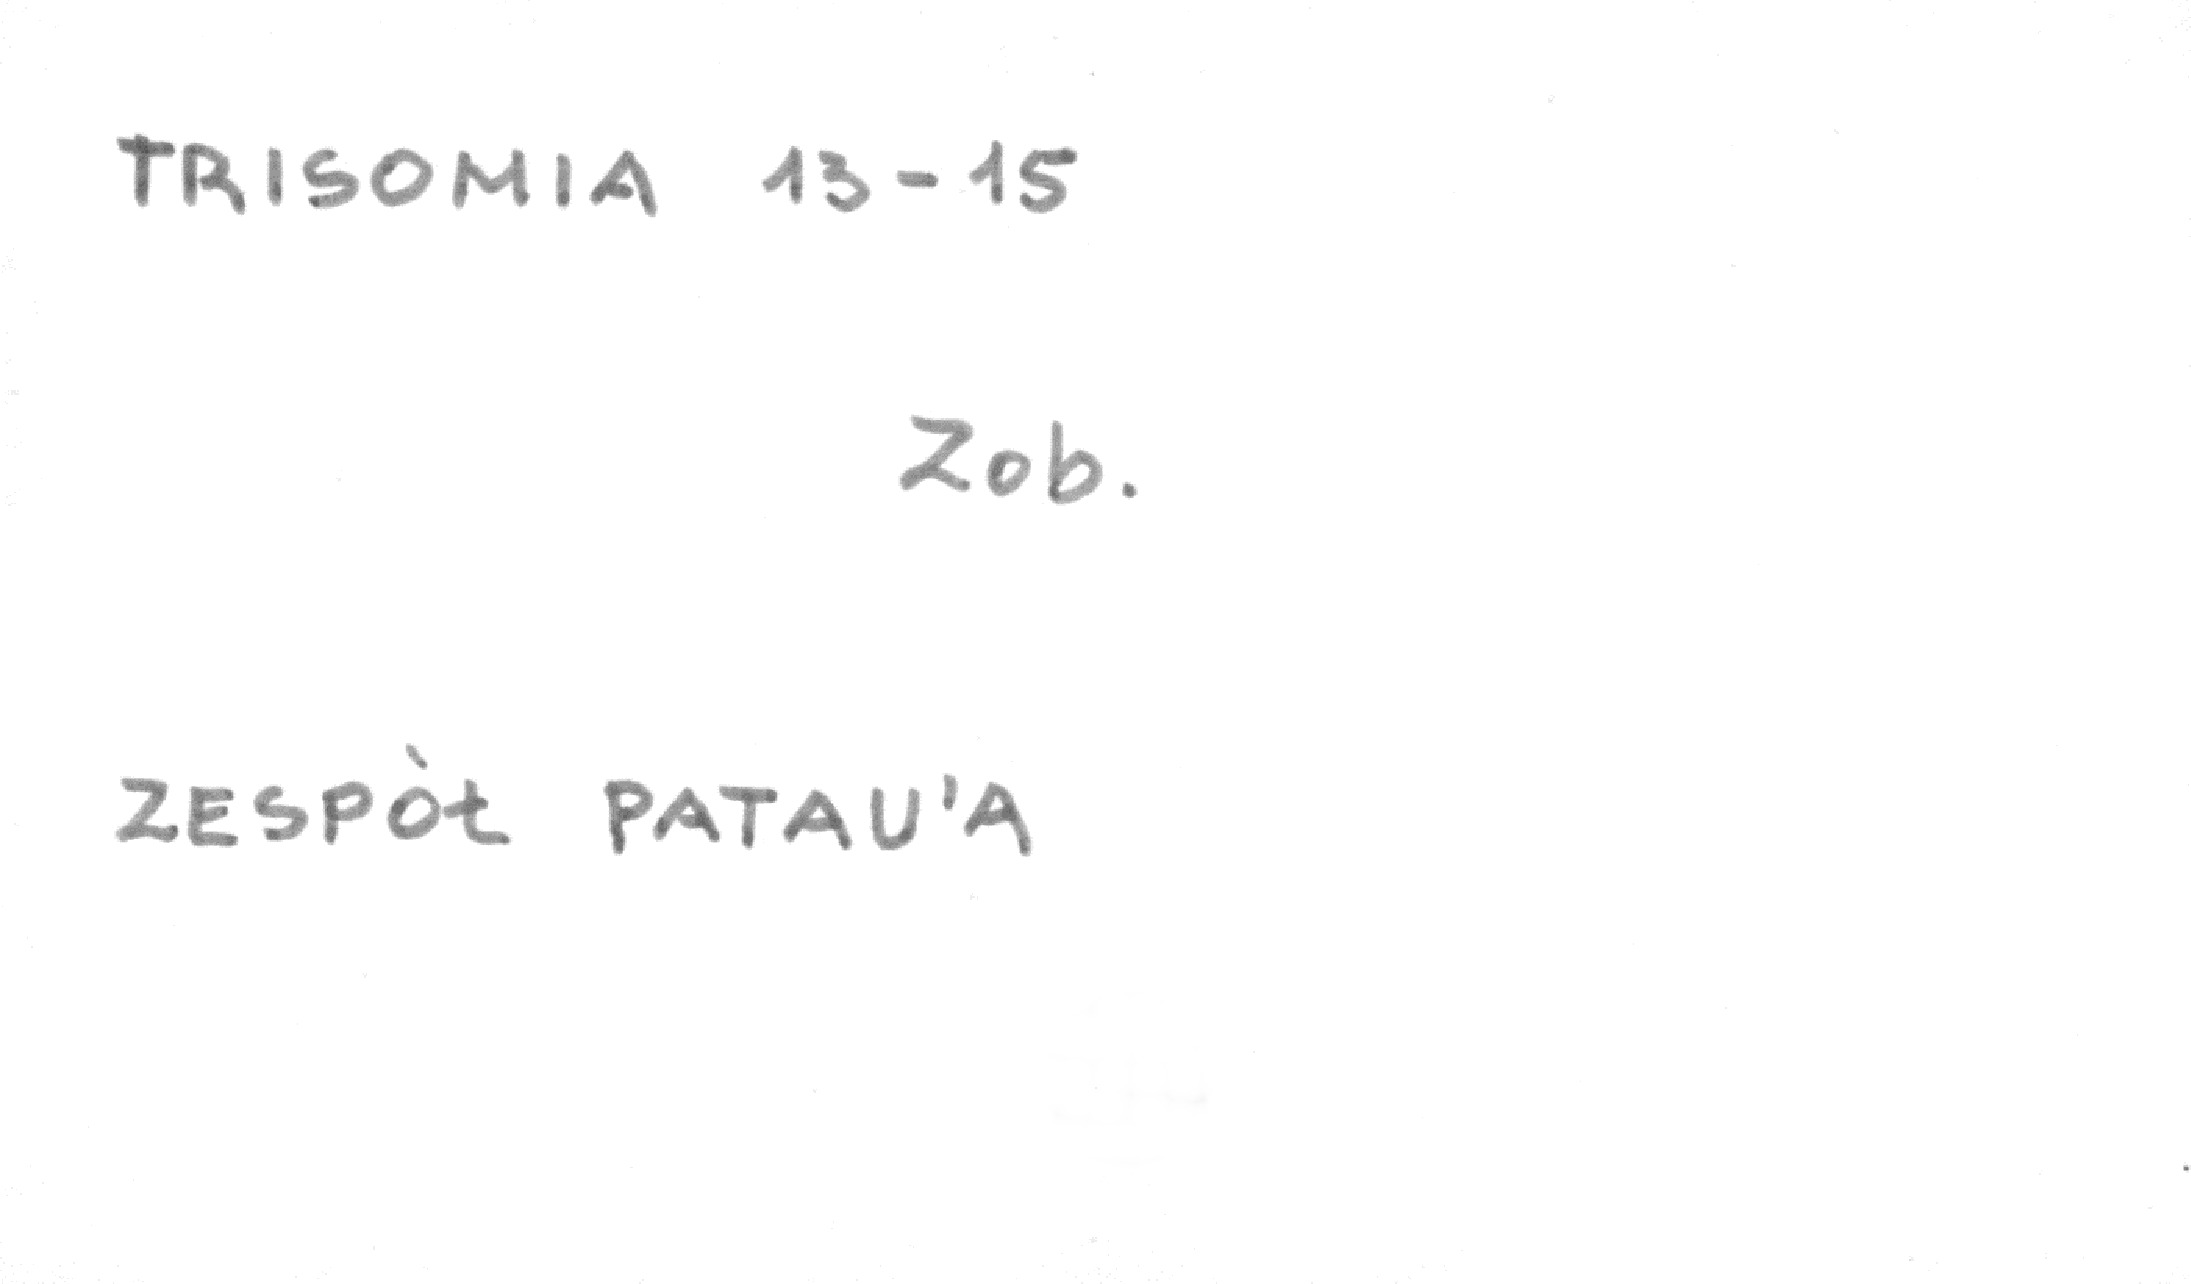 TRISOMIA 13-15
Zob.
ZESPÒŁ PATAU'A